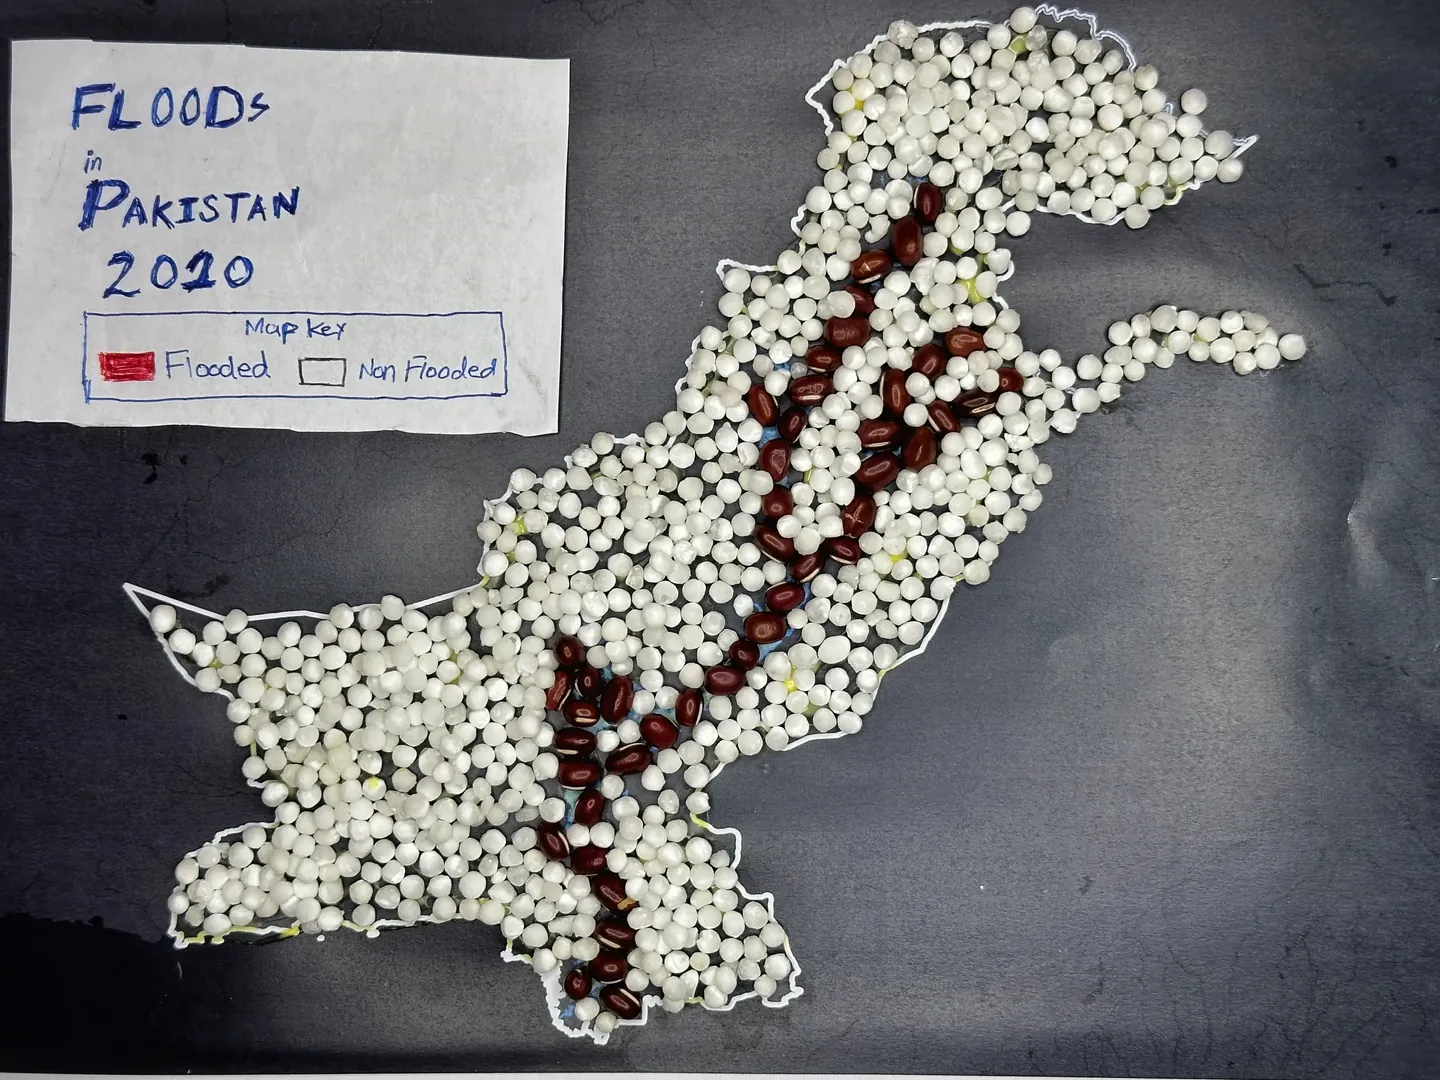 FLOODs
in
PAKISTAN
2010
Map Key
Flooded Non Flooded